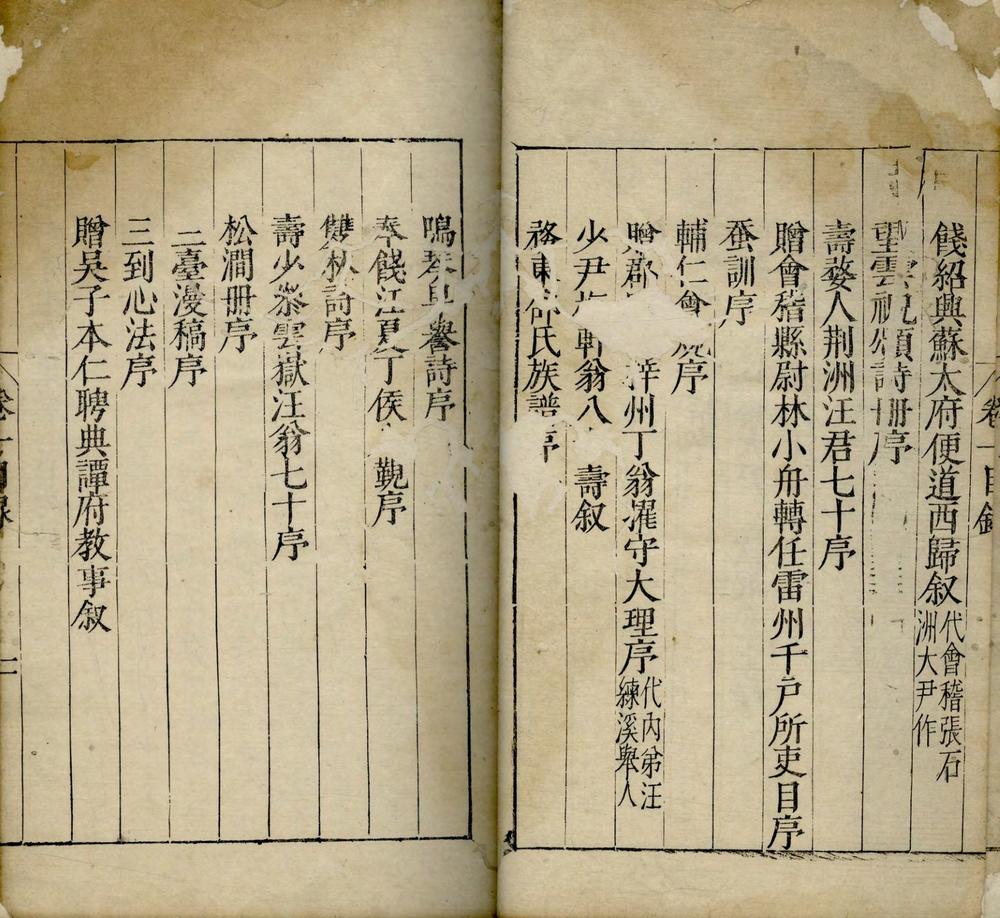 卷一目錄
餞紹興蘇太府便道西歸叙代會稽張石洲大尹作
望雲祝頌詩册序
壽婺人荆洲汪君七十序
贈會稽縣尉林小舟轉任雷州千戸所吏目序
蚕訓序
輔仁會序
贈郡梓州丁翁擢守大理序代内弟汪練溪舉人
少尹軒翁八壽叙
務東仰氏族譜序
鳴琴譽詩序
奉餞江夏丁侯覲序
雙林詩序
壽少叅雲嶽汪翁七十序
松澗册序
二臺漫稿序
三到心法序
贈吳子本仁聘典譚府教事叙
卷一目録
二